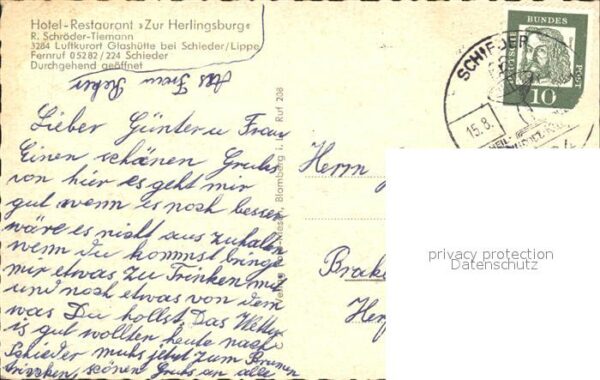 Hotel-Restaurant »Zur Herlingsburg«
R. Schröder-Tiemann
3284 Luftkurort Glashütte bei Schieder/Lippe
Fernruf 05282/224 Schieder
Durchgehend geöffnet
Lieber Günter u Frau
Einen schänen Gruhs
von hier es geht mir
gut wenn es noch besser
wäre es nicht aus zuhalten
wenn du kommst bringe
mir etwas zu Trinken mit
und noch etwas von dem
was Du hollst Das Wetter
is gut wollten heute nach
Schieder muhs jetzt zum Brunen
trinken, schönen Gruhs an alle
Blomberg i. Ruf 208
SCHIEDER
15.8.
DEUTSCHE BUNDESPOST
10
Herrn
Brake
privacy protection
Datenschutz